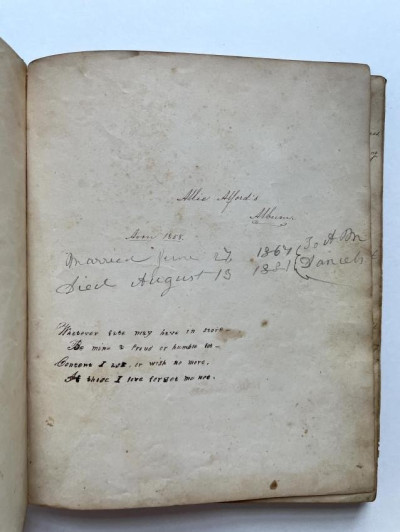 Allie Alford's
Album
Married June 27, 1867 To A M
Died August 13 18 Daniels
Whatever fate may have in store—
Be mine a proud or humble lot—
Content I ask, or wish no more,
If those I love forget me not.